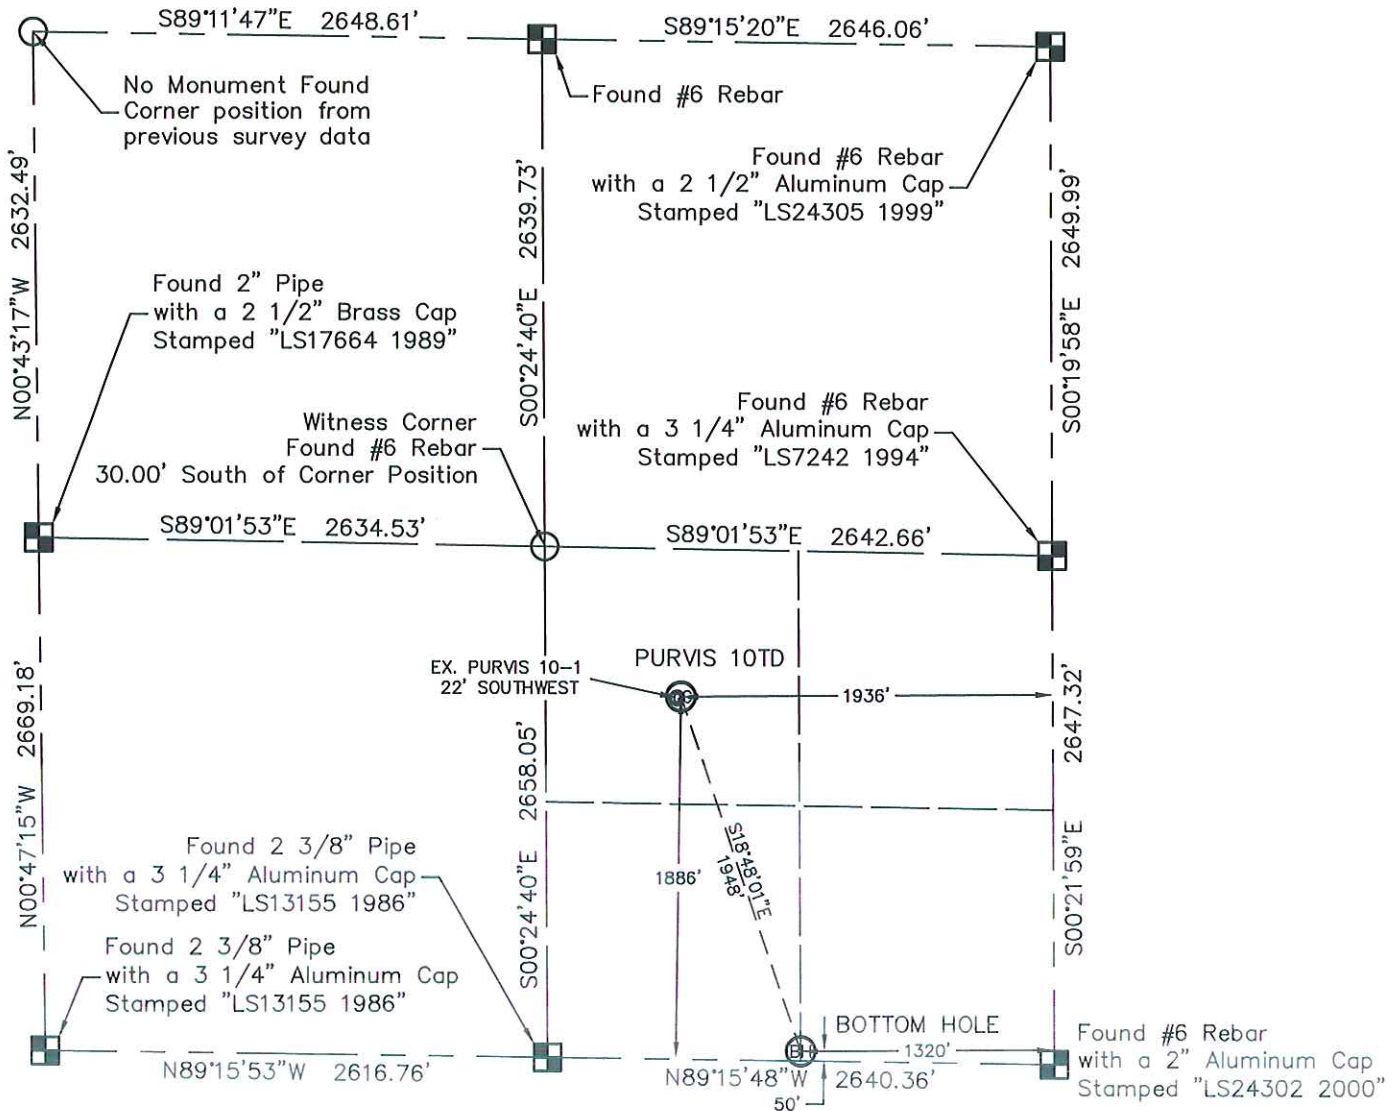 S89°11'47"E 2648.61'
S89°15'20"E 2646.06'
No Monument Found
Corner position from
previous survey data
Found #6 Rebar
Found #6 Rebar
with a 2 1/2" Aluminum Cap
Stamped "LS24305 1999"
N00°43'17"W 2632.49'
S00°24'40"E 2639.73'
S00°19'58"E 2649.99'
Found 2" Pipe
with a 2 1/2" Brass Cap
Stamped "LS17664 1989"
Witness Corner
Found #6 Rebar
30.00' South of Corner Position
Found #6 Rebar
with a 3 1/4" Aluminum Cap
Stamped "LS7242 1994"
S89°01'53"E 2634.53'
S89°01'53"E 2642.66'
EX. PURVIS 10-1
22' SOUTHWEST
PURVIS 10TD
1936'
N00°47'15"W 2669.18'
S00°24'40"E 2658.05'
S00°21'59"E 2647.32'
1886'
S18°48'01"E
1948'
Found 2 3/8" Pipe
with a 3 1/4" Aluminum Cap
Stamped "LS13155 1986"
Found 2 3/8" Pipe
with a 3 1/4" Aluminum Cap
Stamped "LS13155 1986"
BOTTOM HOLE
BH
1320'
N89°15'53"W 2616.76'
N89°15'48"W 2640.36'
50'
Found #6 Rebar
with a 2" Aluminum Cap
Stamped "LS24302 2000"